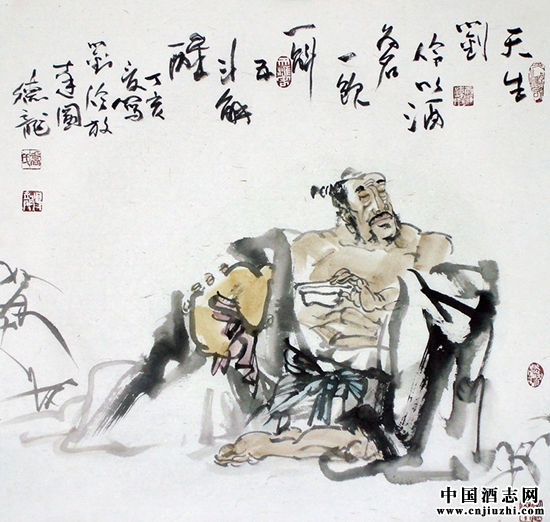 天生
劉
伶以酒
為名
一飲
一斛
五
斗解
酲
丁亥
夏寫
劉伶放
達圖
德龍
中国酒志网
www.cnjiuzhi.com